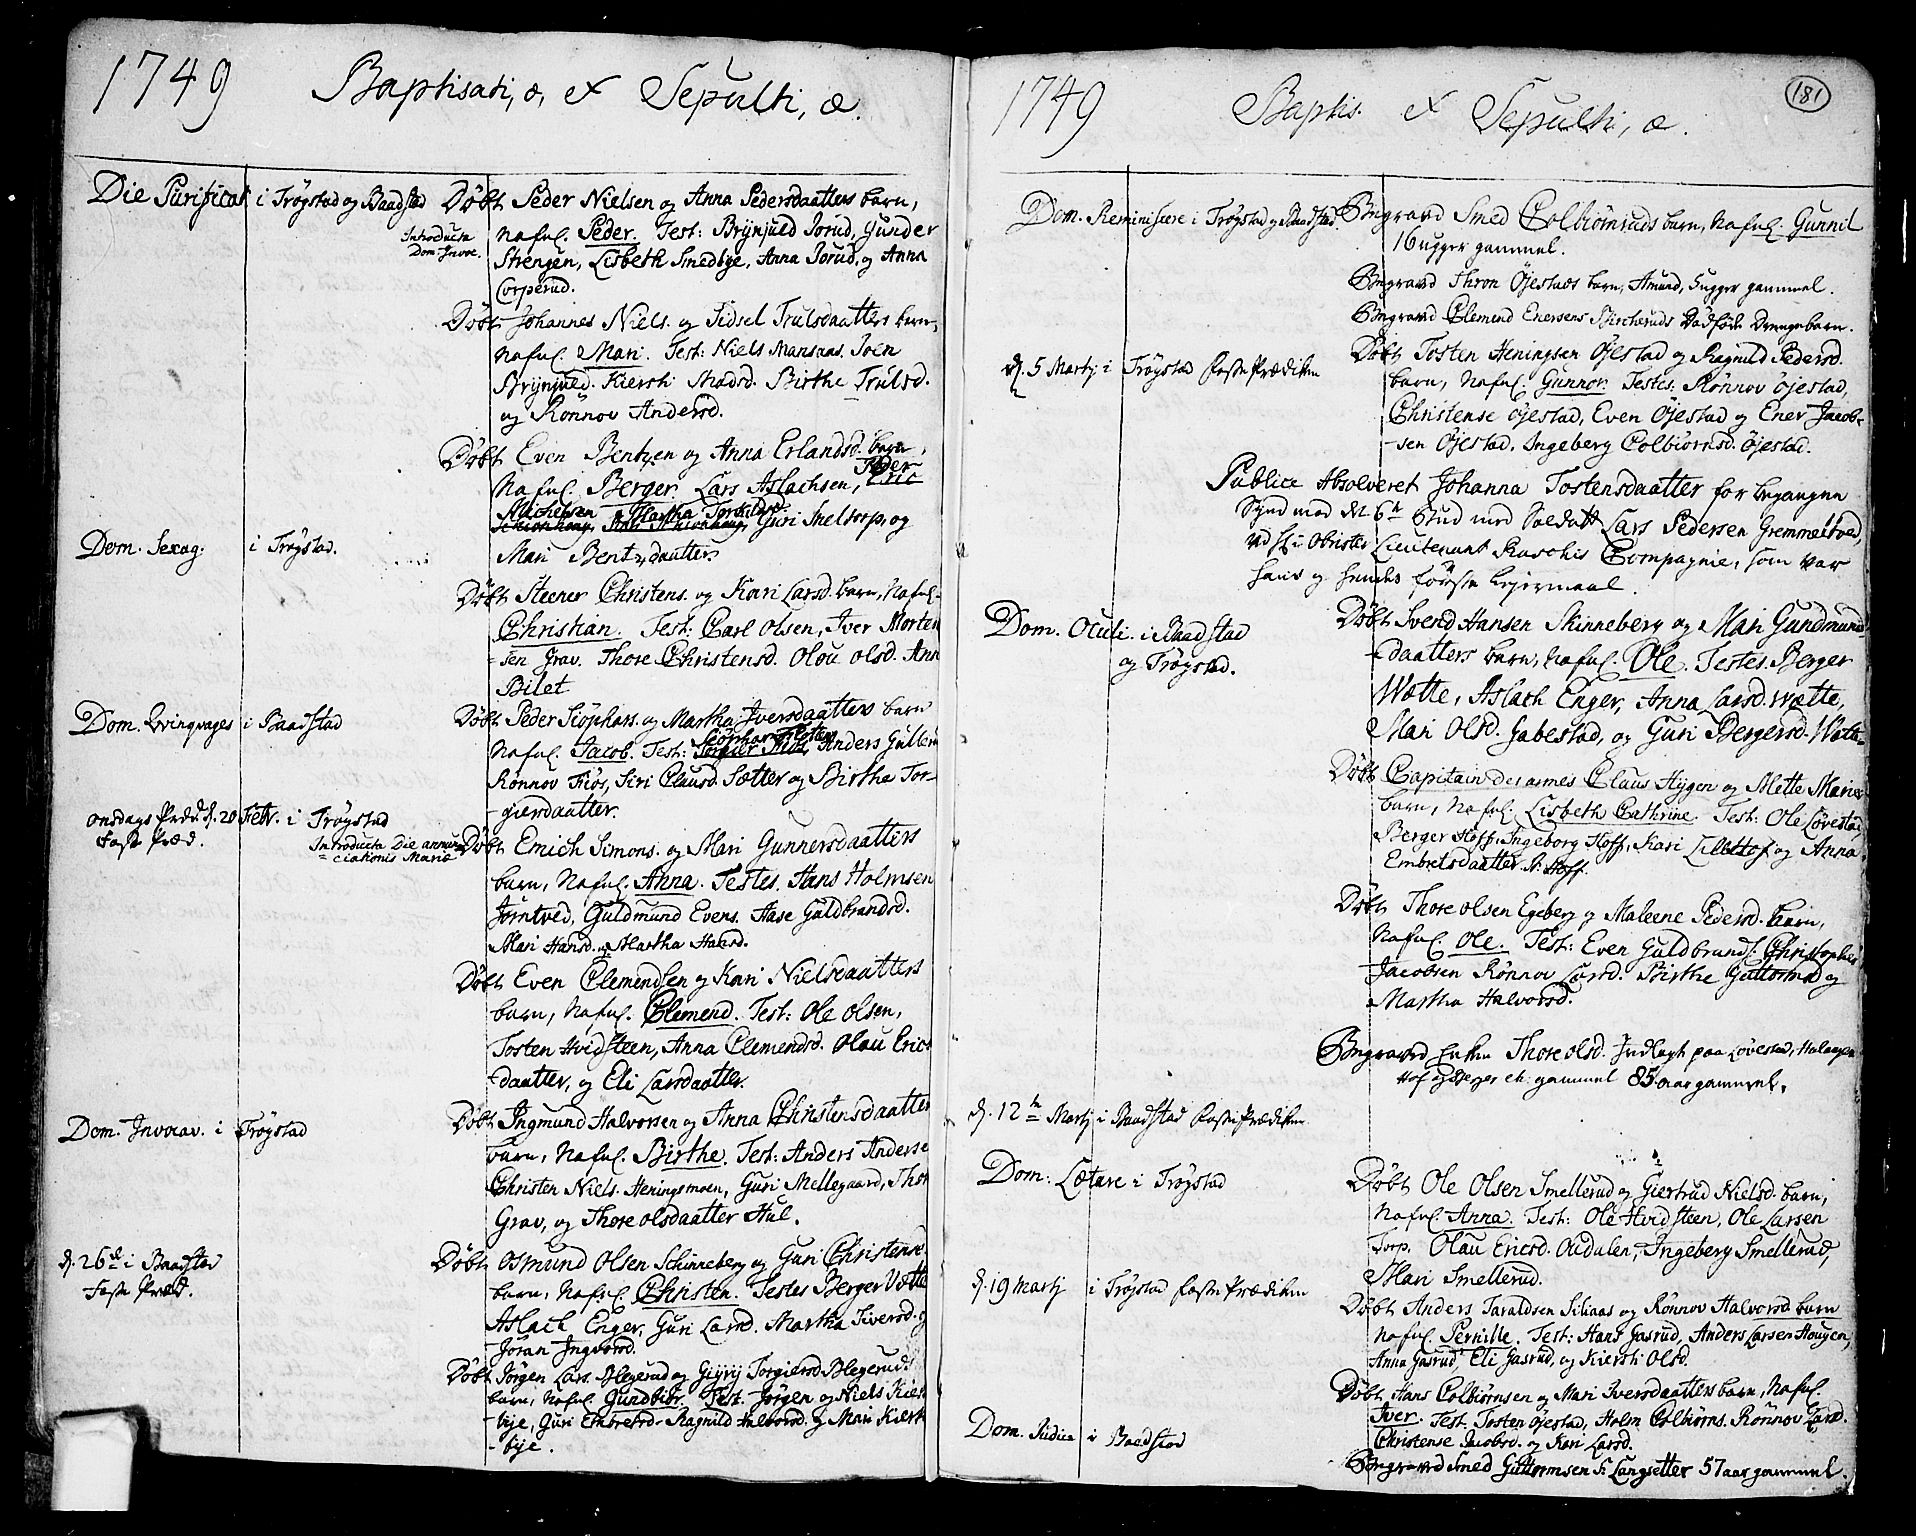 1749 Baptisati, æ, et Sepulti, æ.
Die Purificat i Trøgstad og Baadstad
Døbt Peder Nielsen og Anna Pedersdaatters barn,
Introducta
Dom Invoc.
Nafnl. Peder. Test: Brynjuld Jorud, Gunder
Strengen, Lisbeth Smedbye, Anna Jorud, og Anna
Corperud.
Døbt Johannes Niels. og Sidsel Trulsdaatters barn,
Nafnl. Mari. Test: Niels Mansaas. Joen
Brynjuld. Kiersti Madsd. Birthe Trulsd.
og Rönnov Andersd.
Døbt Even Bentzen og Anna Erlandsd. barn,
Nafnl. Berger. Lars Aslachsen, Peder Eric
Michelsen Martha Torkildsd.
Guri Skeltorp, og
Mari Bentzdaatter.
Dom. Sexag. i Trøgstad.
Døbt Steener Christens. og Kari Larsd. barn, Nafnl.
Christian. Test: Carl Olsen, Iver Morten
-sen Grav. Thore Christensd. Olou Olsd. Ann
Bilet
Dom. Qvinqvages i Baadstad
Døbt Peder Siöphars. og Martha Iversdaatters barn
Nafnl. Jacob. Test: Anders Gullem
Rönnov Fiös, Siri Clausd. Sætter og Birthe Tor-
-giersdaatter.
onsdags Præd. d. 20 Febr. i Trøgstad
Faste Præd.
Introducta Die annun
=ciationis Mariæ
Døbt Emich Simons. og Mari Gunnersdaatters
barn, Nafnl. Anna. Testes. Hans Holmsen
Jörntved, Guldmund Evens. Aase Guldbrandsd.
Mari Hansd. og Martha Hansd.
Døbt Even Clemendsen og Kari Nielsdaatters
barn, Nafnl. Clemend. Test: Ole Olsen,
Tosten Hvidsteen, Anna Clemendsd. Olou Erics
daatter, og Eli Larsdaatter.
Dom. Invocav. i Trøgstad
Døbt Ingmund Halvorsen og Anna Christensdaatter
barn, Nafnl. Birthe. Test: Anders Anderse
Christen Niels. Heningsmoen, Guri Mellegaard, Thor
Grav, og Thore Olsdaatter Hul.
d. 26de i Baadstad
Faste Præd.
Døbt Osmund Olsen Schinneberg og Guri Christensd.
barn, Nafnl. Christen. Testes Berger Vætte
Aslach Enger, Guri Larsd. Martha Siversd. og
Jöran Ingvorsd.
Døbt Jörgen Lars. Blegerud og Gijrij Torgiersd Blegeruds
barn, Nafnl. Gundbior. Test. Jörgen og Niels Kirke
-bye, Guri Embretsd. Ragnild Halvorsd. og Mari Kierke
-bye.
1749 Baptis. et Sepulti, æ.
181
Dom. Reminiscere i Trøgstad og Baadstad.
Begraved Smed Colbiörnruds barn, Nafnl. Gunnil
16 ugger gammel.
Begraved Thron Öjestads barn, Amund, 5 ugger gammel.
Begraved Clemend Enersens Bircheruds Dödföde Drengebarn.
d. 5 Martj i Trøgstad FastePrædiken
Døbt Tosten Heningsen Øjestad og Ragnild Pedersd.
barn, Nafnl. Gunnor. Testes: Rönnov Øjestad,
Christense Øjestad, Even Øjestad og Ener Jacob-
-sen Øjestad, Ingeberg Colbiörnsd. Øjestad.
Publice Absolveret Johanna Tostensdaatter for begangen
Synd mod det 6te Bud med Soldatt Lars Pedersen Gremmestved,
ved Hr. Obrister Lieutenant Raschis Compagnie, som var
hans og hendes förste Lejermaal.
Dom. Oculi. i Baadstad
og Trøgstad.
Døbt Svend Hansen Skinneberg og Mari Gundmunds
-daatters barn, Nafnl. Ole. Testes. Berger
Wætte, Aslach Enger, Anna Larsd. Wætte,
Mari Olsd. Gabestad, og Guri Bergersd. Wætte
Døbt Capitain des armes Claus Hygen og Mette Maries
barn, Nafnl. Lisbeth Cathrine. Test: Ole Lövestad
Berger Hoff. Ingeborg Hoff, Kari Lillehof og Anna
Embretsdaatter N. Hoff.
Døbt Thore Olsen Egeberg og Maleene Pedersd. barn,
Nafnl. Ole. Test: Even Guldbrands. Christopher
Jacobsen Rönnov Larsd. Birthe Guttormsd og
Martha Halvorsd.
Begraved Enken Thore Olsd. Indlagt paa Lövestad,
gammel 85 aar gammel.
d. 12te Martj i Baadstad FastePrædiken
Dom: Lætare i Trøgstad
Døbt Ole Olsen Smellerud og Giertrud Nielsd. barn,
Nafnl. Anna. Test: Ole Hvidsteen, Ole Larsen
Torp. Olau Ericsd. Audalen, Ingeberg Smellerud,
Mari Smellerud.
d. 19 Martj i Trøgstad FastePrædiken
Døbt Anders Taraldsen Siliaas og Rönnov Halvorsd. barn
Nafnl. Pernille. Test: Hans Gasrud, Anders Larsen Hougen,
Anna Gasrud, Eli Gasrud, og Kiersti Olsd.
Døbt Hans Colbiörnsen og Mari Iversdaatters barn, Nafnl.
Iver. Test. Tosten Øjestad, Holm Colbiörns. Rönnov Larsd.
Christense Jacobsd. og Kari Larsd.
Dom. Judica i Baadstad
Begraved Smed Guttormsen S. Langsetter 57 aar gammel.